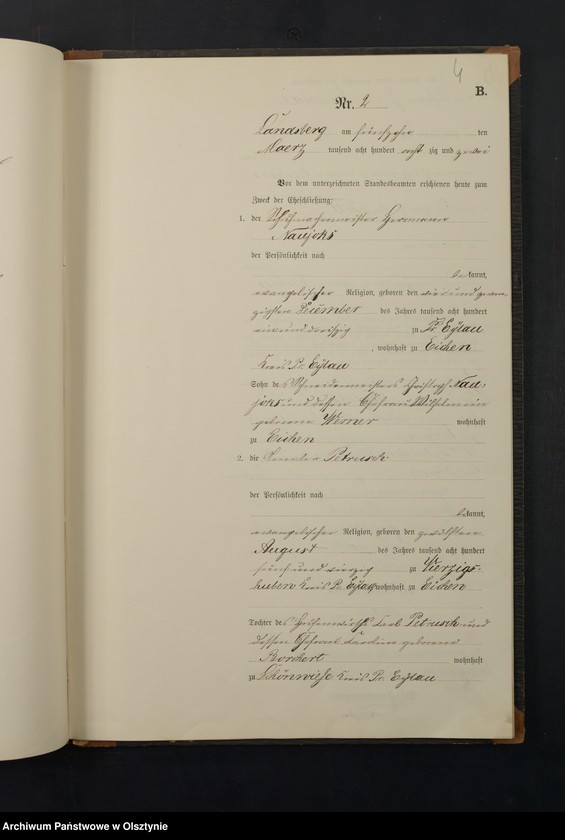 4
B.
Nr. 2
Landsberg am fünfzehn den
Maerz tausend acht hundert acht zig und zwei
Vor dem unterzeichneten Standesbeamten erschienen heute zum
Zweck der Eheschließung:
1. der Schuhmachermeister Hermann
Naujoks
der Persönlichkeit nach
bekannt,
evangelischer Religion, geboren den vier und zwan-
zigsten Dezember des Jahres tausend acht hundert
ein und dreißig zu Pr Eylau
, wohnhaft zu Eichen
Kreis Pr. Eylau
Sohn des Schneidermeisters Christoph Nau-
joks und dessen Ehefrau Wilhelmine
geborene Werner wohnhaft
zu Eichen
2. die Petrusch
der Persönlichkeit nach
bekannt,
evangelischer Religion, geboren den zwölften
August des Jahres tausend acht hundert
fünf und vierzig zu Vierzig-
huben Kreis Pr. Eylau wohnhaft zu Eichen
Tochter des Carl Petrusch und
dessen Ehefrau geborene
Borchert wohnhaft
zu Schönwiese Kreis Pr. Eylau
Archiwum Państwowe w Olsztynie